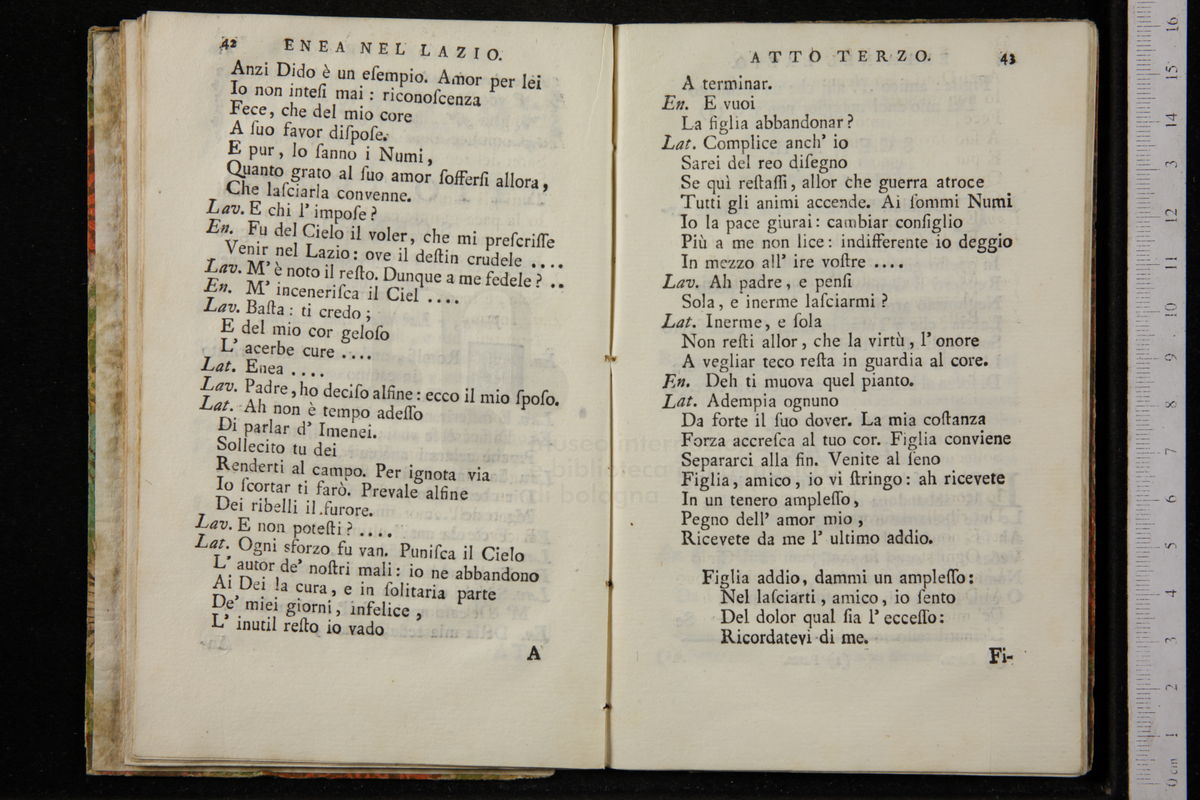 42 ENEA NEL LAZIO.
Anzi Dido è un eſempio. Amor per lei
Io non inteſi mai : riconoſcenza
Fece, che del mio core
A ſuo favor diſpoſe.
E pur, lo ſanno i Numi,
Quanto grato al ſuo amor ſofferſi allora,
Che laſciarla convenne.
Lav. E chi l' impoſe ?
En. Fu del Cielo il voler, che mi preſcriſſe
Venir nel Lazio : ove il deſtin crudele ....
Lav. M' è noto il reſto. Dunque a me fedele ? ..
En. M' inceneriſca il Ciel ....
Lav. Baſta : ti credo ;
E del mio cor geloſo
L' acerbe cure ....
Lat. Enea ....
Lav. Padre, ho deciſo alfine : ecco il mio ſpoſo.
Lat. Ah non è tempo adeſſo
Di parlar d' Imenei.
Sollecito tu dei
Renderti al campo. Per ignota via
Io ſcortar ti farò. Prevale alfine
Dei ribelli il furore.
Lav. E non poteſti ? ....
Lat. Ogni sforzo fu van. Puniſca il Cielo
L' autor de' noſtri mali : io ne abbandono
Ai Dei la cura, e in ſolitaria parte
De' miei giorni, infelice ,
L' inutil reſto io vado
A
ATTO TERZO. 43
A terminar.
En. E vuoi
La figlia abbandonar ?
Lat. Complice anch' io
Sarei del reo diſegno
Se quì reſtaſſi, allor che guerra atroce
Tutti gli animi accende. Ai ſommi Numi
Io la pace giurai : cambiar conſiglio
Più a me non lice : indifferente io deggio
In mezzo all' ire voſtre ....
Lav. Ah padre, e penſi
Sola, e inerme laſciarmi ?
Lat. Inerme, e ſola
Non reſti allor, che la virtù, l' onore
A vegliar teco reſta in guardia al core.
En. Deh ti muova quel pianto.
Lat. Adempia ognuno
Da forte il ſuo dover. La mia coſtanza
Forza accreſca al tuo cor. Figlia conviene
Separarci alla fin. Venite al ſeno
Figlia, amico, io vi ſtringo : ah ricevete
In un tenero ampleſſo,
Pegno dell' amor mio ,
Ricevete da me l' ultimo addio.
Figlia addio, dammi un ampleſſo :
Nel laſciarti, amico, io ſento
Del dolor qual ſia l' ecceſſo :
Ricordatevi di me.
Fi-
Museo internazionale
e biblioteca della musica
di bologna
0 cm 1 2 3 4 5 6 7 8 9 10 11 12 13 14 15 16